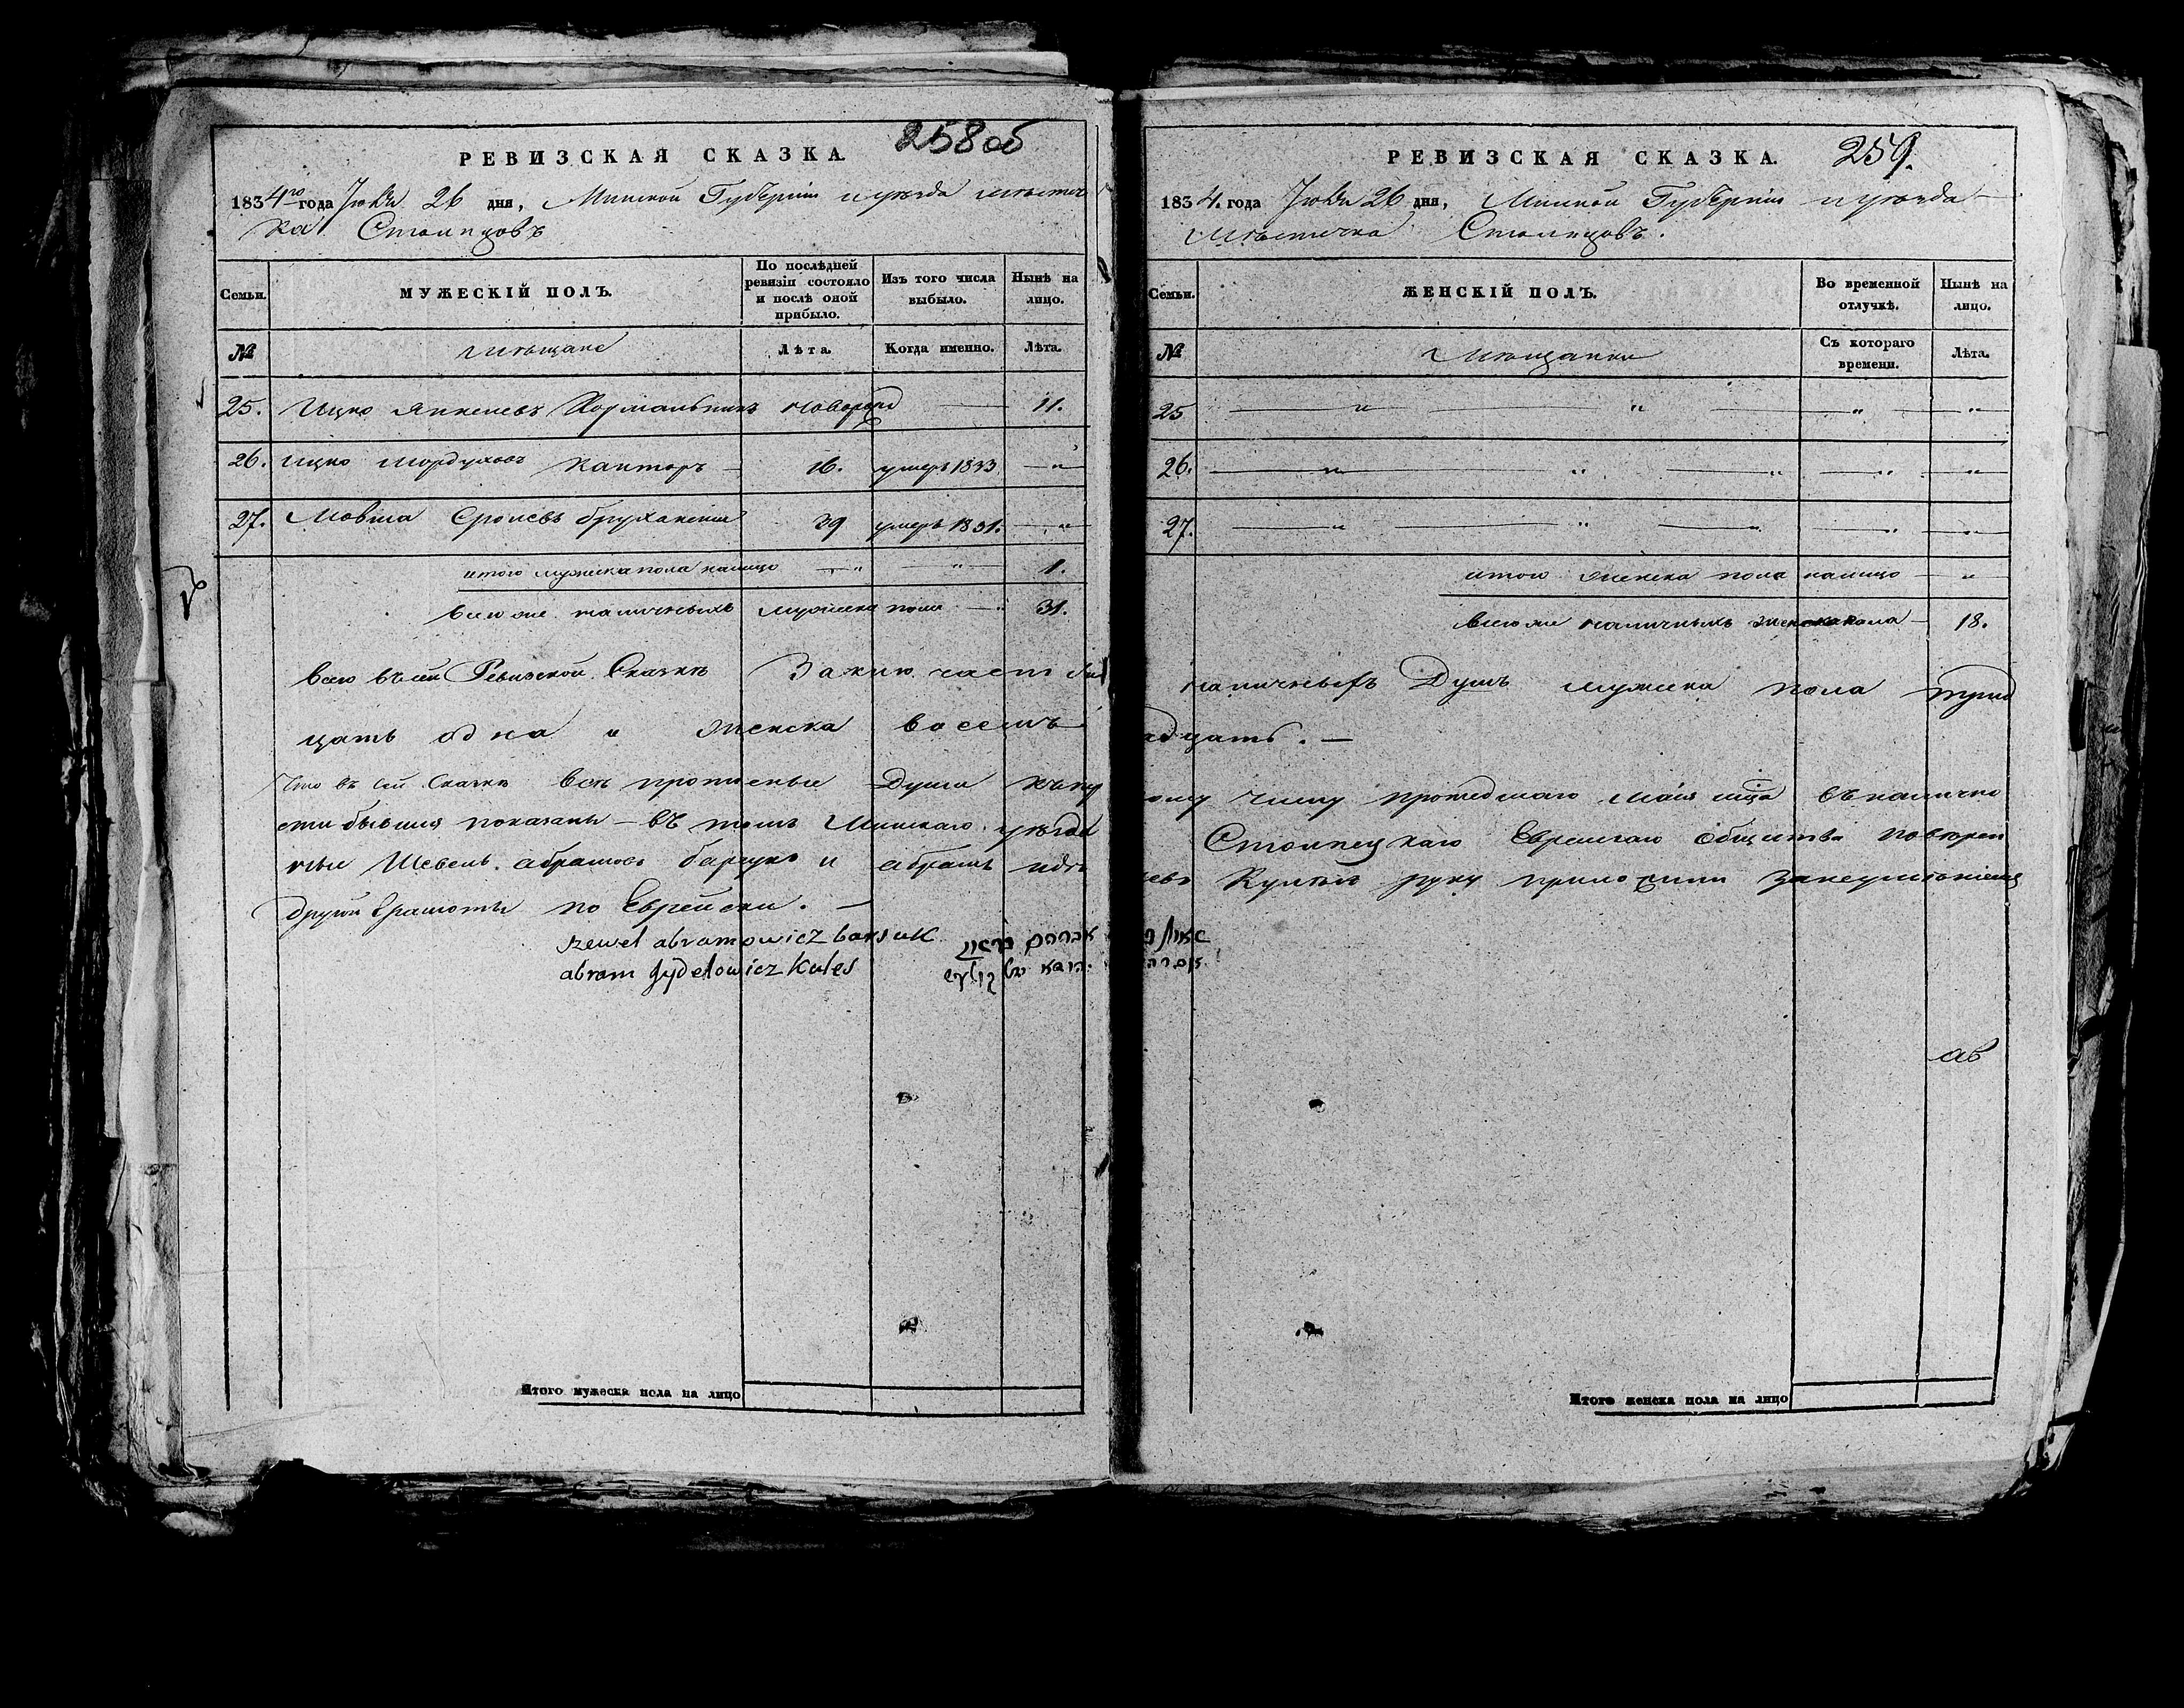 258об
РЕВИЗСКАЯ СКАЗКА.
1834го года Июня 26 дня, Минской Губерніи и уѣзда мѣстеч
ка Столпцовъ
Семьи.
МУЖЕСКІЙ ПОЛЪ.
По послѣдней ревизіи состояло и послѣ оной прибыло.
Изъ того числа выбыло.
Нынѣ на лицо.
№
Мѣщане
Лѣта.
Когда именно.
Лѣта.
25. Ицко Янкелевъ новорожд — 11.
26. Ицко Мордуховъ Канторъ — 16. умеръ 1833 — "
27. Мовша Сролевъ 39 умеръ 1831. — "
итого мужеска пола налицо — " — " 1.
всего же наличныхъ мужеска пола — " 31.
всего въ сей Ревизской Сказкѣ Заключаетъ
цать одна и женска восемъ
Что въ сей Сказкѣ всѣ прописныя Души къ
сти бывшія показаны — въ томъ Минскаго уѣзда
ные Шевель Абрамовъ Барсукъ и Абрамъ
другой Грамоты по Еврейски. —
szewel abramowicz barsuk
abram Jydelowicz Kules
259.
РЕВИЗСКАЯ СКАЗКА.
1834. года Июня 26 дня, Минской Губерніи и уѣзда —
мѣстечка Столпцовъ.
Семьи.
ЖЕНСКІЙ ПОЛЪ.
Во временной отлучкѣ.
Нынѣ на лицо.
№
Мѣщанки
Съ котораго времени.
Лѣта.
25 — " — " — " — "
26. — " — " — " — "
27. — " — " — " — "
итого женска пола налицо — "
всего же наличныхъ женска пола — 18.
наличныхъ Душъ мужеска пола трид
адцать. —
ому числу прошедшаго маія мца въ налично
Столпецкаго Еврейскаго Общества повѣрен
руку приложили
ав
Итого мужеска пола на лицо
Итого женска пола на лицо